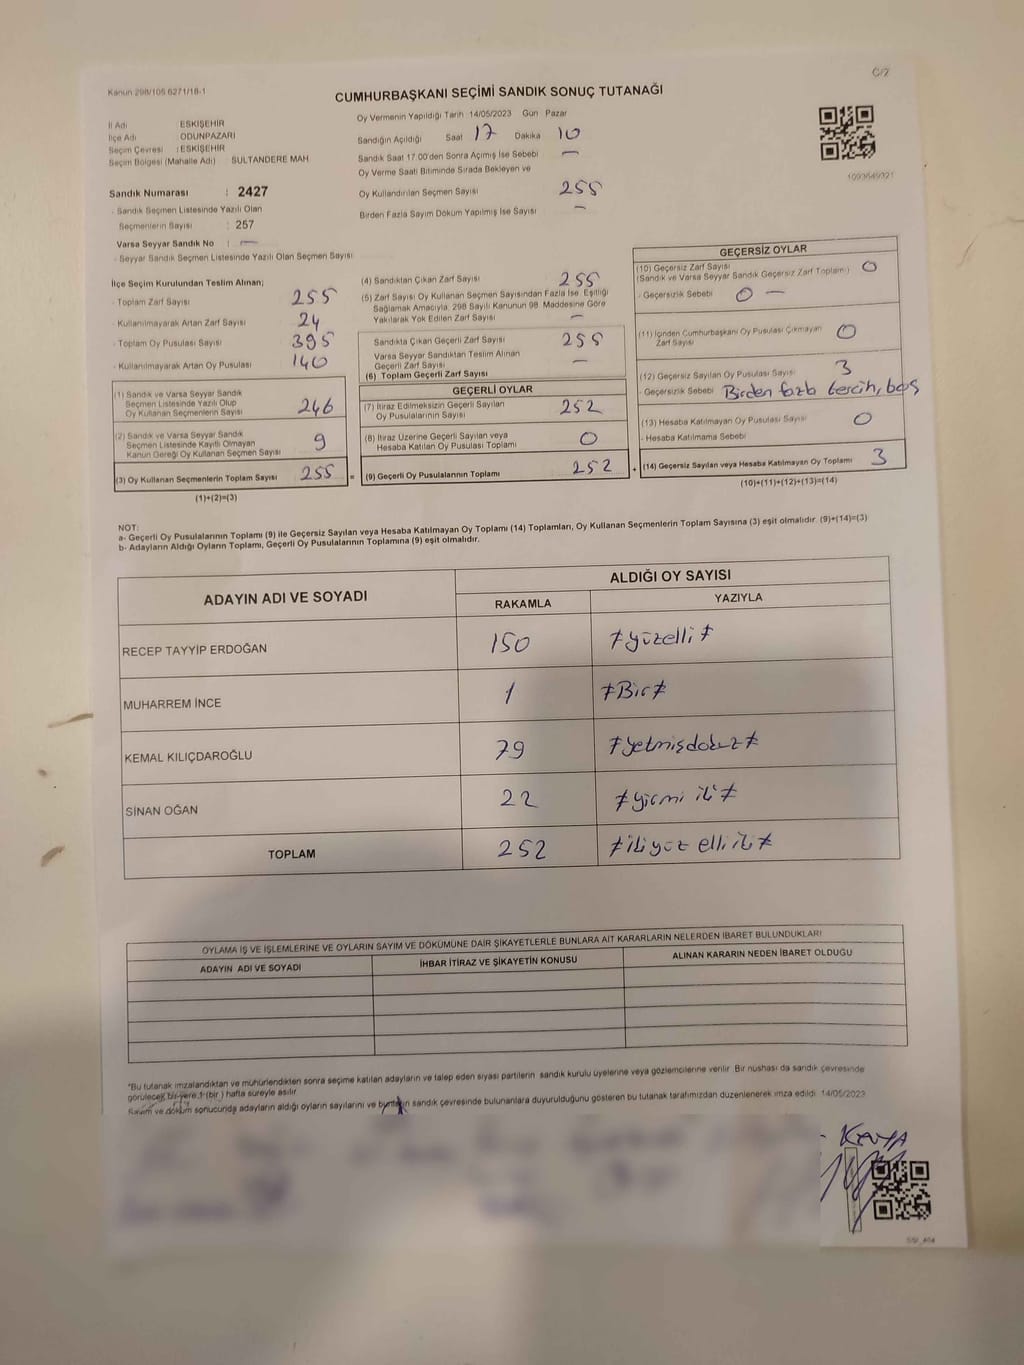 C/2
Kanun 298/105 6271/18-1
CUMHURBAŞKANI SEÇİMİ SANDIK SONUÇ TUTANAĞI
İl Adı : ESKİŞEHİR
İlçe Adı : ODUNPAZARI
Seçim Çevresi : ESKİŞEHİR
Seçim Bölgesi (Mahalle Adı) : SULTANDERE MAH
Sandık Numarası : 2427
- Sandık Seçmen Listesinde Yazılı Olan
Seçmenlerin Sayısı : 257
Varsa Seyyar Sandık No : —
- Seyyar Sandık Seçmen Listesinde Yazılı Olan Seçmen Sayısı
Oy Vermenin Yapıldığı Tarih 14/05/2023 Gün Pazar
Sandığın Açıldığı Saat 17 Dakika 10
Sandık Saat 17:00'den Sonra Açımış İse Sebebi —
Oy Verme Saati Bitiminde Sırada Bekleyen ve
Oy Kullandırılan Seçmen Sayısı 255
Birden Fazla Sayım Döküm Yapılmış İse Sayısı —
1093649321
İlçe Seçim Kurulundan Teslim Alınan;
- Toplam Zarf Sayısı 255
- Kullanılmayarak Artan Zarf Sayısı 24
- Toplam Oy Pusulası Sayısı 395
- Kullanılmayarak Artan Oy Pusulası 140
(1) Sandık ve Varsa Seyyar Sandık
Seçmen Listesinde Yazılı Olup
Oy Kullanan Seçmenlerin Sayısı 246
(2) Sandık ve Varsa Seyyar Sandık
Seçmen Listesinde Kayıtlı Olmayan
Kanun Gereği Oy Kullanan Seçmen Sayısı 9
(3) Oy Kullanan Seçmenlerin Toplam Sayısı 255 =
(1)+(2)=(3)
(4) Sandıktan Çıkan Zarf Sayısı 255
(5) Zarf Sayısı Oy Kullanan Seçmen Sayısından Fazla İse, Eşitliği
Sağlamak Amacıyla, 298 Sayılı Kanunun 98. Maddesine Göre
Yakılarak Yok Edilen Zarf Sayısı —
Sandıkta Çıkan Geçerli Zarf Sayısı 255
Varsa Seyyar Sandıktan Teslim Alınan
Geçerli Zarf Sayısı —
(6) Toplam Geçerli Zarf Sayısı
GEÇERLİ OYLAR
(7) İtiraz Edilmeksizin Geçerli Sayılan
Oy Pusulalarının Sayısı 252
(8) İtiraz Üzerine Geçerli Sayılan veya
Hesaba Katılan Oy Pusulası Toplamı 0
(9) Geçerli Oy Pusulalarının Toplamı 252 +
GEÇERSİZ OYLAR
(10) Geçersiz Zarf Sayısı
(Sandık ve Varsa Seyyar Sandık Geçersiz Zarf Toplam ) 0
- Geçersizlik Sebebi 0 —
(11) İçinden Cumhurbaşkanı Oy Pusulası Çıkmayan
Zarf Sayısı 0
(12) Geçersiz Sayılan Oy Pusulası Sayısı 3
- Geçersizlik Sebebi Birden fazla tercih, boş
(13) Hesaba Katılmayan Oy Pusulası Sayısı 0
- Hesaba Katılmama Sebebi
(14) Geçersiz Sayılan veya Hesaba Katılmayan Oy Toplamı 3
(10)+(11)+(12)+(13)=(14)
NOT:
a- Geçerli Oy Pusulalarının Toplamı (9) ile Geçersiz Sayılan veya Hesaba Katılmayan Oy Toplamı (14) Toplamları, Oy Kullanan Seçmenlerin Toplam Sayısına (3) eşit olmalıdır. (9)+(14)=(3)
b- Adayların Aldığı Oyların Toplamı, Geçerli Oy Pusulalarının Toplamına (9) eşit olmalıdır.
ADAYIN ADI VE SOYADI
ALDIĞI OY SAYISI
RAKAMLA YAZIYLA
RECEP TAYYİP ERDOĞAN 150 ≠yüzelli≠
MUHARREM İNCE 1 ≠Bir≠
KEMAL KILIÇDAROĞLU 79 ≠yetmişdokuz≠
SİNAN OĞAN 22 ≠yirmi iki≠
TOPLAM 252 ≠ikiyüz elli iki≠
OYLAMA İŞ VE İŞLEMLERİNE VE OYLARIN SAYIM VE DÖKÜMÜNE DAİR ŞİKAYETLERLE BUNLARA AİT KARARLARIN NELERDEN İBARET BULUNDUKLARI
ADAYIN ADI VE SOYADI İHBAR İTİRAZ VE ŞİKAYETİN KONUSU ALINAN KARARIN NEDEN İBARET OLDUĞU
*Bu tutanak imzalandıktan ve mühürlendikten sonra seçime katılan adayların ve talep eden siyasi partilerin sandık kurulu üyelerine veya gözlemcilerine verilir. Bir nüshası da sandık çevresinde
görülecek bir yere 1 (bir ) hafta süreyle asılır.
Sayım ve döküm sonucunda adayların aldığı oyların sayılarını ve bunların sandık çevresinde bulunanlara duyurulduğunu gösteren bu tutanak tarafımızdan düzenlenerek imza edildi. 14/05/2023